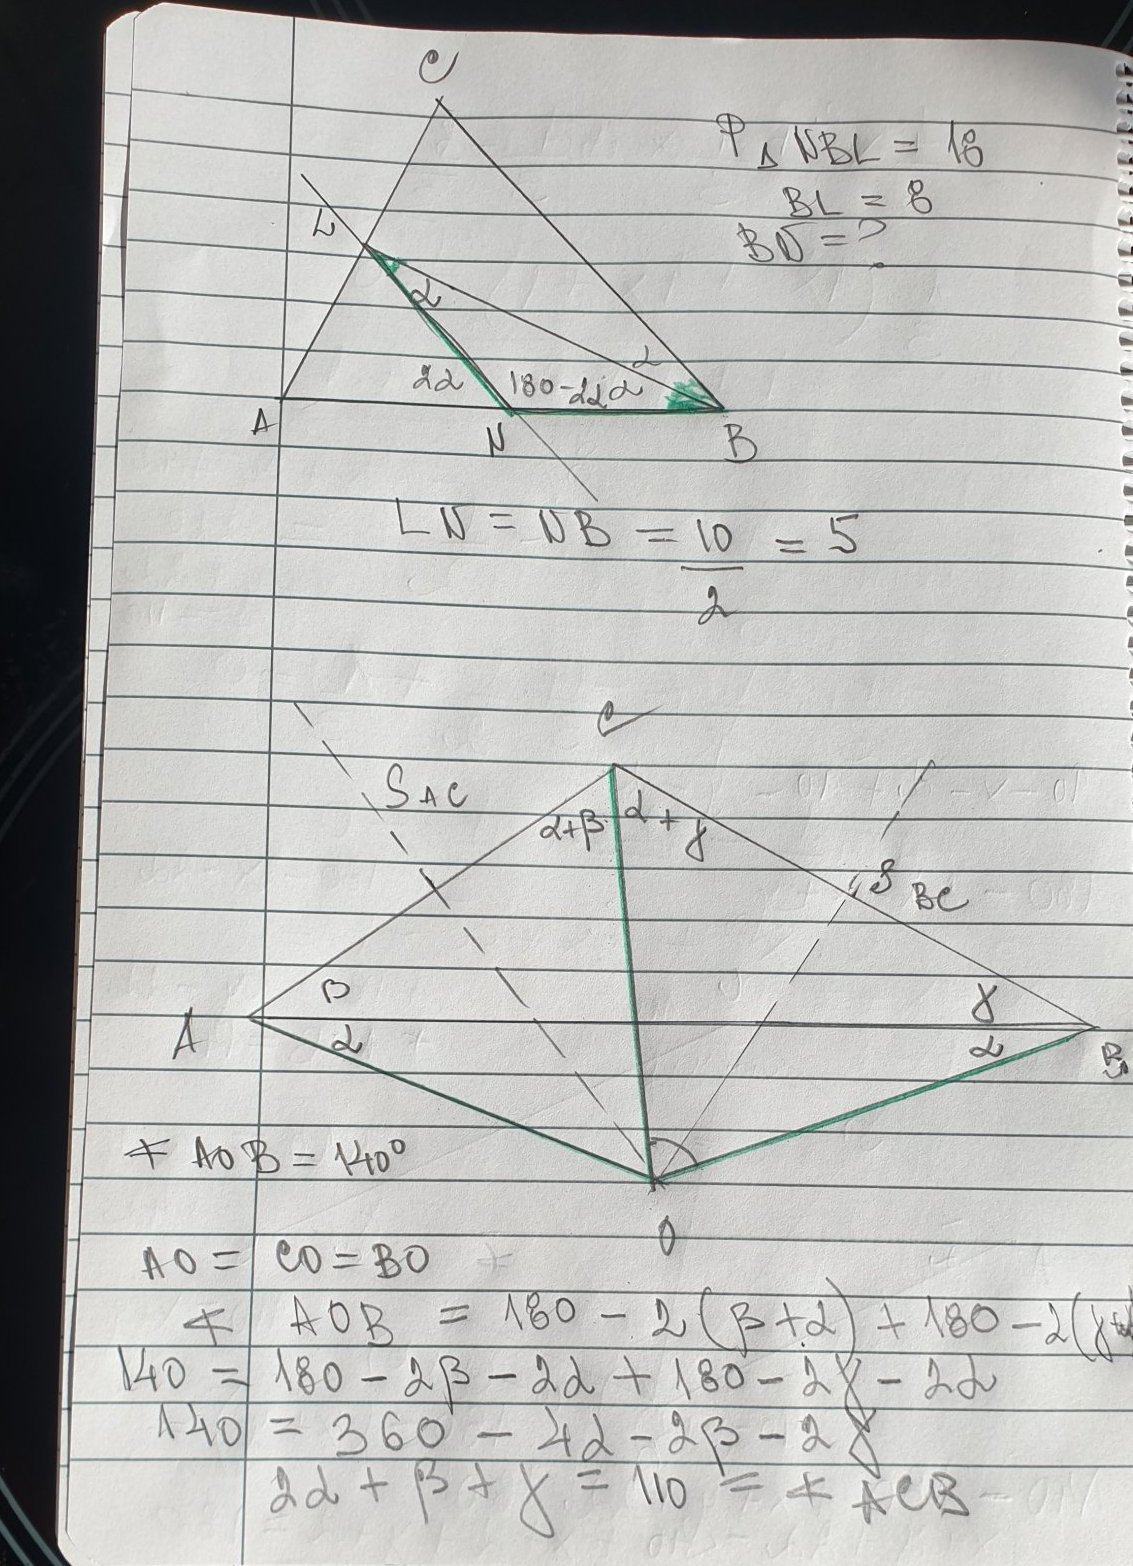 C
P△NBL = 18
BL = 8
BN = ?
L
α
α
2α 180-2α α
A N B
LN = NB = 10/2 = 5
C
SAC
α+β α+γ
SBC
β γ
A α α B
∢ AOB = 140°
O
AO = CO = BO
∢ AOB = 180 - 2(β+α) + 180 - 2(γ+α
140 = 180 - 2β - 2α + 180 - 2γ - 2α
140 = 360 - 4α - 2β - 2γ
2α + β + γ = 110 = ∢ ACB